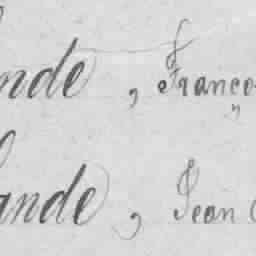 nde, Franço
ande, Jean